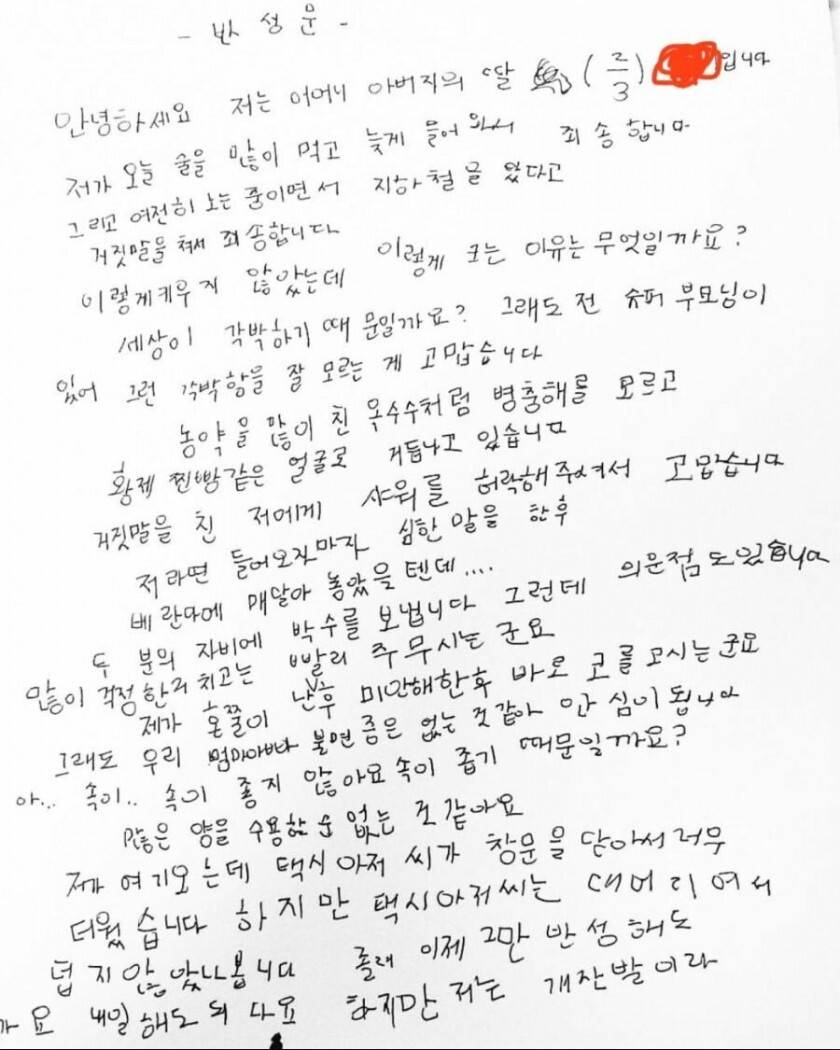 - 반성문 -
안녕하세요 저는 어머니 아버지의 딸 (2/3) 입니다
저가 오늘 술을 많이 먹고 늦게 들어 와서 죄송합니다
그리고 여전히 노는 중이면서 지하철을 탔다고
거짓말을 쳐서 죄송합니다
이렇게키우지 않았는데 이렇게 크는 이유는 무엇일까요?
세상이 각박하기 때문일까요? 그래도 전 슈퍼 부모님이
있어 그런 각박함을 잘 모르는 게 고맙습니다
농약을 많이 친 옥수수처럼 병충해를 모르고
황제 찐빵같은 얼굴로 거듭나고 있습니다
거짓말을 친 저에게 샤워를 허락해주셔서 고맙습니다
저라면 들어오자마자 심한 말을 한후
베란다에 매달아 놓았을텐데....
두 분의 자비에 박수를 보냅니다 그런데 의문점도있습니다
많이 걱정한거 치고는 빨리 주무시는 군요
제가 혼쭐이 난후 미안해한후 바로 코를 고시는군요
그래도 우리 엄마아빠 불면증은 없는 것같아 안심이됩니다
아... 속이.. 속이 좋지 않아요 속이 좁기 때문일까요?
많은 양을 수용할순 없는 것 같아요
저가 여기오는데 택시 아저 씨가 창문을 닫아서 너무
더웠습니다 하지만 택시아저씨는 대머리여서
덥지않았나봅니다 졸래 이제 그만 반성해도
가요 내일해도 되 다요 하지만 저는 개잔발이라